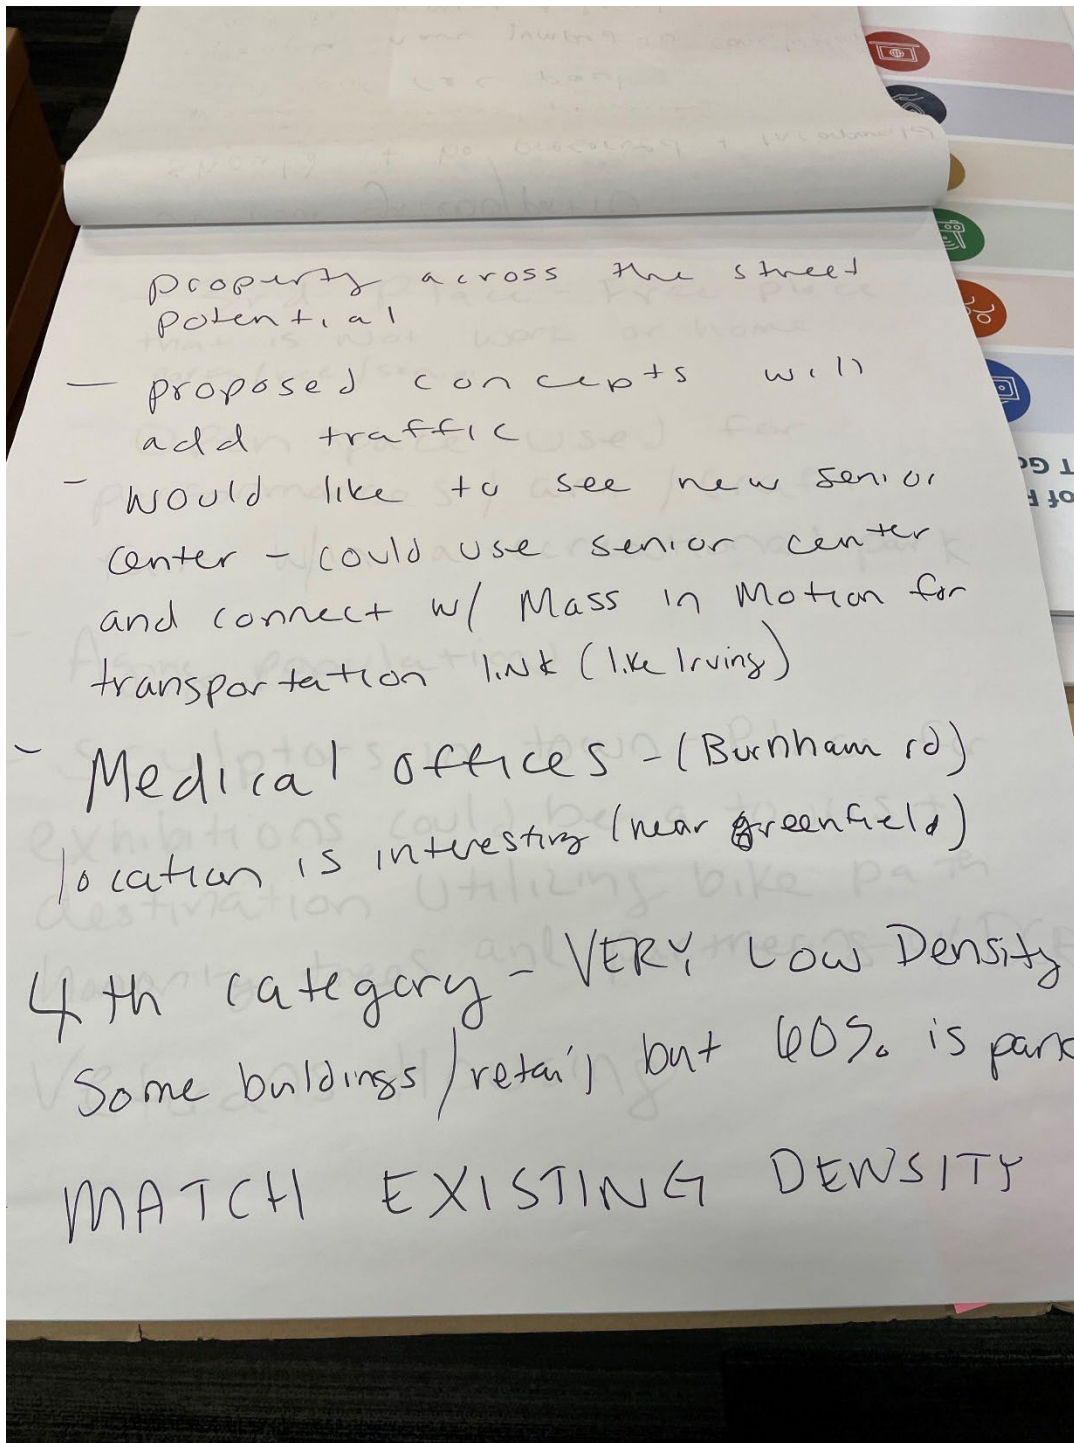 property across the street
potential
— proposed concepts will
add traffic
- would like to see new senior
center - could use senior center
and connect w/ Mass in Motion for
transportation link (like Irving)
- Medical offices - (Burnham rd)
location is interesting (near greenfield)
4th category - VERY Low Density
Some buildings/retail, but 60% is park
MATCH EXISTING DENSITY